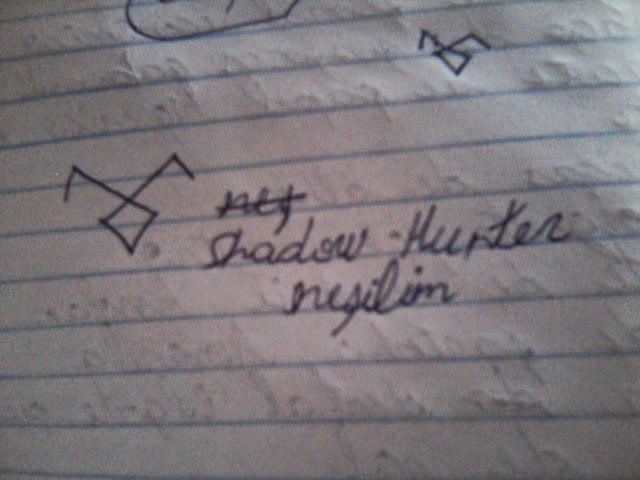 shadow-Hunter
nefilim